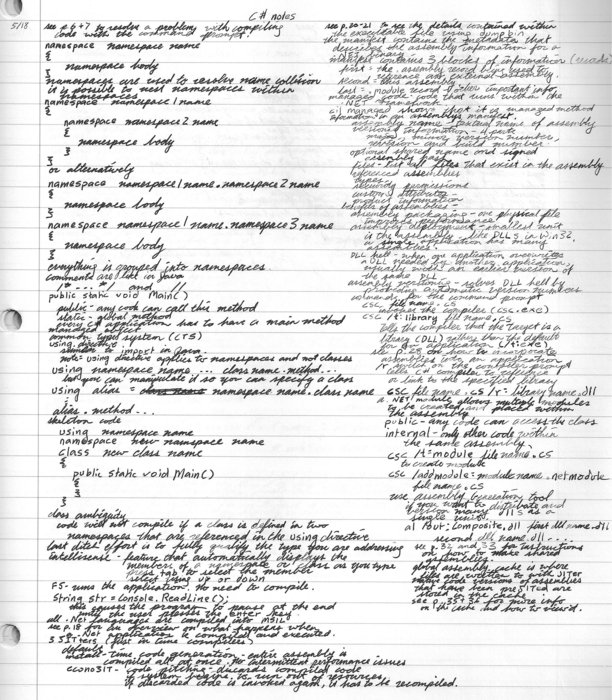 C# notes
5/18
see p 6+7 to resolve a problem with compiling
code with the command prompt.
namespace namespace name
{
namespace body
}
namespaces are used to resolve name collision
it is possible to nest namespaces within
namespaces
namespace namespace 1 name
{
namespace namespace 2 name
{
namespace body
}
}
or alternatively
namespace namespace 1 name.namespace 2 name
{
namespace body
}
namespace namespace 1 name.namespace 3 name
{
namespace body
}
everything is grouped into namespaces.
comments are like in Java
/* --- */ and //
public static void Main()
public - any code can call this method
static - global method
every C# application has to have a main method
managed object
common type system (CTS)
using directive
similar to import in Java
note: using directive applies to namespaces and not classes
using namespace name ... class name.method...
but you can manipulate it so you can specify a class
using alias = namespace name.class name
alias.method...
skeleton code
using namespace name
namespace new namespace name
class new class name
{
public static void Main()
{
}
}
class ambiguity
code will not compile if a class is defined in two
namespaces that are referenced in the using directive
last ditch effort is to fully qualify the type you are addressing
intellisense - feature that automatically displays the
members of a namespace or class as you type
press tab to select the member
select using up or down
F5 - runs the application. No need to compile.
String str = Console.ReadLine();
this causes the program to pause at the end
until the user presses the enter key
all .Net languages are compiled into MSIL
see p.18 for an overview on what happens when
a .Net application is compiled and executed.
3 JITters (just in time compilers)
default
install-time code generation - entire assembly is
compiled all at once. No intermittent performance issues
econoJIT - code pitching - discards compiled code
if system begins to run out of resources.
if discarded code is invoked again, it has to be recompiled.
see p.20-21 to see the details contained within
the executable file using dumpbin
the manifest contains the metadata that
describes the assembly information for a
library
manifest contains 3 blocks of information (records)
first = the assembly record blgns used to
reference an external assembly.
second = this assembly
last = .module record & other important info.
managed code - code that runs within the
.NET framework
cil managed shows that it is managed method
information in an assembly's manifest.
assembly name - textual name of assembly
version information - 4 part
major, minor version number,
revision and build number
optional shared name and signed
assembly hash
files - list of files that exist in the assembly
referenced assemblies
types
security permissions
custom attributes
product information
benefits of assemblies
assembly packaging - one physical file
improves performance
assembly deployment - smallest unit
is the assembly. Like DLLs in Win32,
a single application has many
assemblies.
DLL hell - when an application overwrites
a DLL needed by another application,
usually with an earlier version of
the same DLL.
assembly versioning - solves DLL hell by
providing automatic version numbers
commands for the command prompt
csc file name.cs
invokes the compiler (csc.exe)
csc /t:library file name.cs
tells the compiler that the target is a
library (DLL) rather than the default
for a version (/t:exe)
see p.28 on how to incorporate
assemblies into an application
/r switch on the command prompt
tells C# compiler to reference
or link to the specified library
csc file name.cs /r: library name.dll
.Net module allows multiple modules
to be created and placed within
the assembly
public - any code can access the class
internal - only other code within
the same assembly.
csc /t=module file name.cs
to create module
csc /addmodule=module name.netmodule
file name.cs
use assembly generation tool
if you want to distribute and
version many DLLs as a
single unit.
al /out:composite.dll first dll name.dll
second dll name.dll ....
see p.32 and 33 for instructions
on how to make shared
assemblies
global assembly cache is where
files are written to with JITer
native code versions of assemblies
that have been preJITed are
stored in the cache
see p.35-36 for more info
on this cache and how to view it.